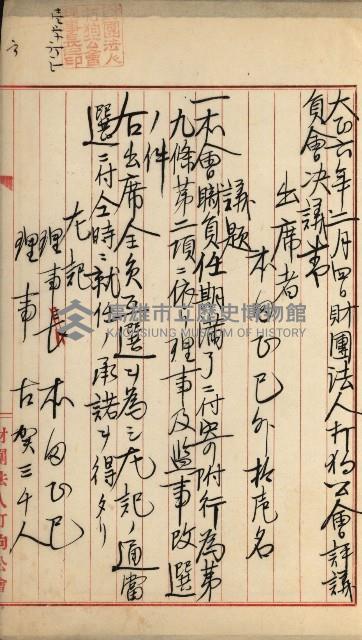 大正六年二月四日財團法人打狗公會評議
員會決議書
出席者
本田正巳外拾壱名
議題
一本會職員任期満了ニ付寄附行為第
九條第二項ニ依リ理事及監事改選
ノ件
右出席全員選ヲ為シ左記ノ通當
選ニ付仝時ニ就任ノ承諾ヲ得タリ
左記
理事長 本田正巳
理事 古賀三千人
財團法人打狗公會
高雄市立歷史博物館
KAOHSIUNG MUSEUM OF HISTORY